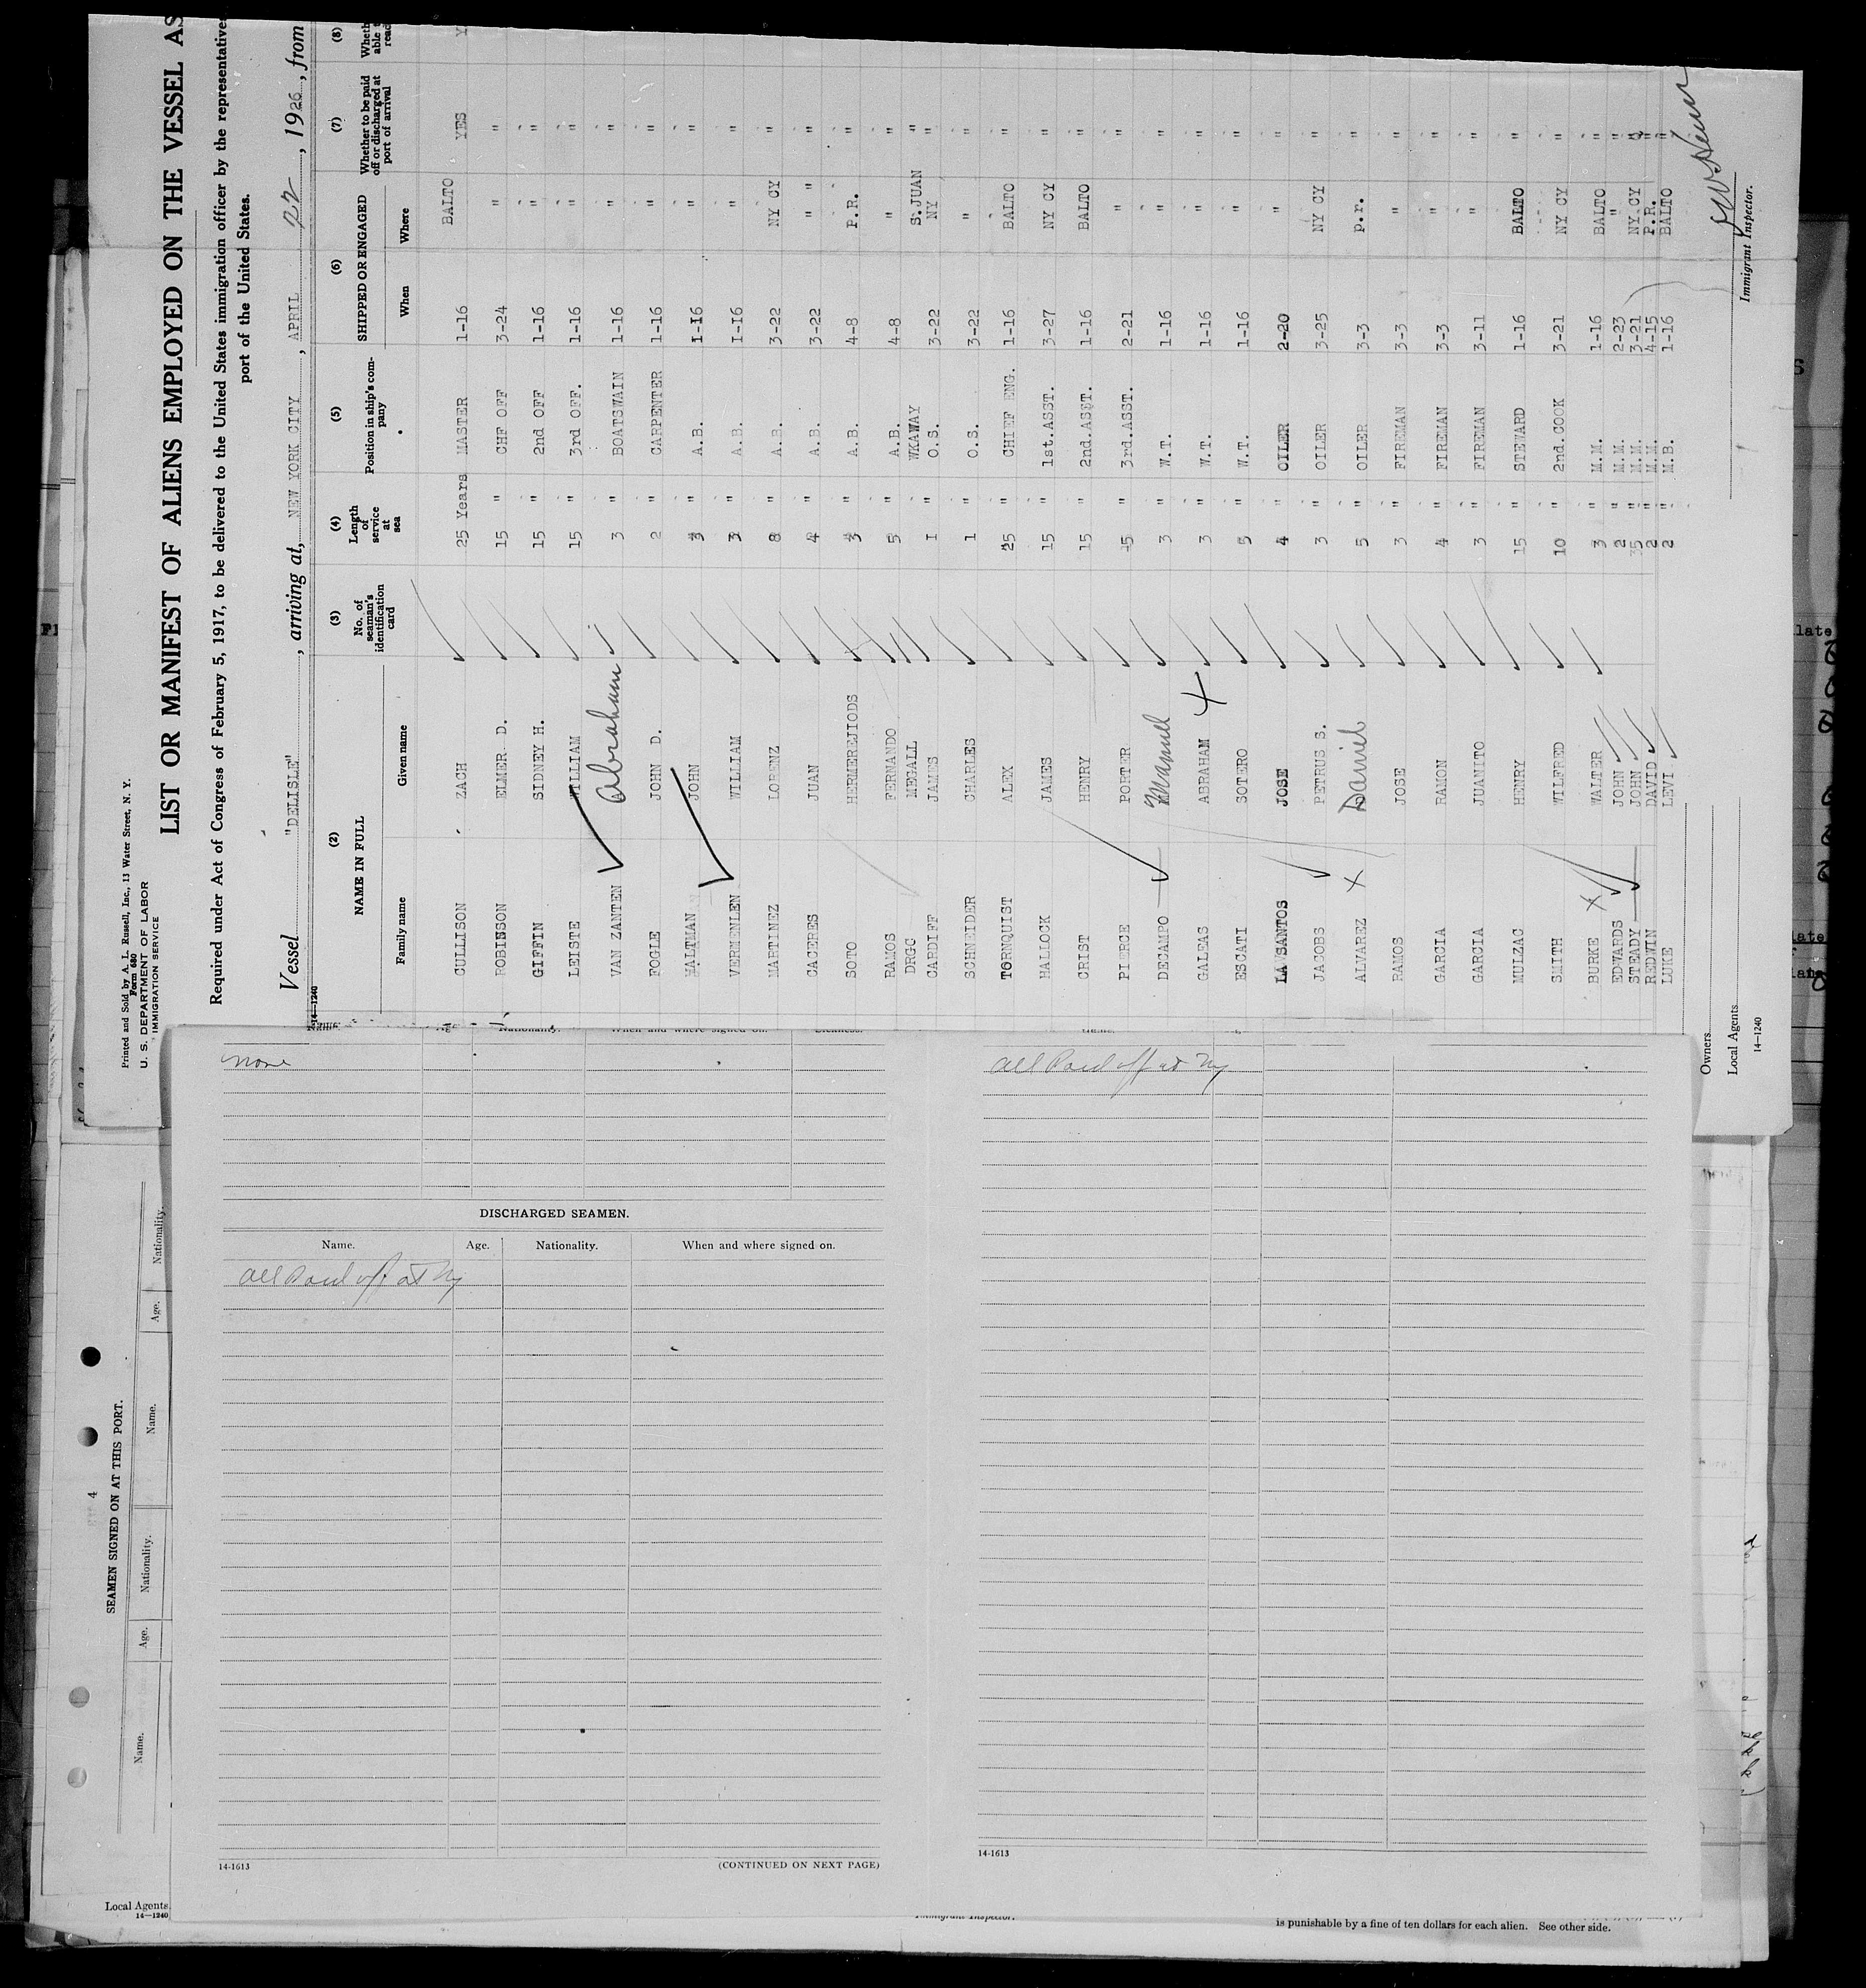 Printed and Sold by A. L. Russell, Inc., 13 Water Street, N. Y.
Form 680
U. S. DEPARTMENT OF LABOR
IMMIGRATION SERVICE
LIST OR MANIFEST OF ALIENS EMPLOYED ON THE VESSEL AS
Required under Act of Congress of February 5, 1917, to be delivered to the United States immigration officer by the representative
port of the United States.
Vessel "DELISLE", arriving at, NEW YORK CITY, APRIL 22, 1926, from
14—1240
(2) (3) (4) (5) (6) (7) (8)
NAME IN FULL No. of seaman's identification card Length of service at sea Position in ship's company SHIPPED OR ENGAGED Whether to be paid off or discharged at port of arrival Wheth able t read
Family name Given name When Where
CULLISON ZACH 25 Years MASTER 1-16 BALTO YES Y
ROBINSON ELMER D. 15 " CHF OFF 3-24 " "
GIFFIN SIDNEY H. 15 " 2nd OFF 1-16 " "
LEISTE WILLIAM 15 " 3rd OFF. 1-16 " "
VAN ZANTEN Abraham 3 " BOATSWAIN 1-16 " "
FOGLE JOHN D. 2 " CARPENTER 1-16 " "
HALTMAN JOHN 3 " A.B. 1-16 " "
VERMENLEN WILLIAM 3 " A.B. 1-16 " "
MARTINEZ LORENZ 8 " A.B. 3-22 NY CY "
CACERES JUAN 4 " A.B. 3-22 " "
BOTO HERMEREJIODS 3 " A.B. 4-8 P.R. "
RAMOS FERNANDO 5 " A.B. 4-8 " "
DRGC MEGALL WKAWAY S.JUAN "
CARDIFF JAMES 1 " O.S. 3-22 NY "
SCHNEIDER CHARLES 1 " O.S. 3-22 " "
TORNQUIST ALEX 25 " CHIEF ENG. 1-16 BALTO "
HALLOCK JAMES 15 " 1st.ASST. 3-27 NY CY "
CRIST HENRY 15 " 2nd.ASST. 1-16 BALTO "
PIERCE PORTER 15 " 3rd.ASST. 2-21 " "
DECAMPO Manuel 3 " W.T. 1-16 " "
GALEAS ABRAHAM 3 " W.T. 1-16 " "
ESCATI SOTERO 5 " W.T. 1-16 " "
LA SANTOS JOSE 4 " OILER 2-20 " "
JACOBS PETRUS S. 3 " OILER 3-25 NY CY "
ALVAREZ Daniel 5 " OILER 3-3 P.r. "
RAMOS JOSE 3 " FIREMAN 3-3 " "
GARCIA RAMON 4 " FIREMAN 3-3 " "
GARCIA JUANITO 3 " FIREMAN 3-11 " "
MULZAC HENRY 15 " STEWARD 1-16 BALTO "
SMITH WILFRED 10 " 2nd.COOK 3-21 NY CY "
BURKE WALTER 3 " M.M. 1-16 BALTO "
EDWARDS JOHN 2 " M.M. 2-23 " "
STEADY JOHN " M.M. 3-21 NY CY "
REDWIN DAVID 2 " M.M. 4-15 P.R. "
LUKE LEVI 2 " M.B. 1-16 BALTO "
Immigrant Inspector.
Owners
Local Agents
14—1240
none
DISCHARGED SEAMEN.
Name. Age. Nationality. When and where signed on.
All Paid off at Ny
14-1613
(CONTINUED ON NEXT PAGE)
All Paid off at Ny
14-1613
SEAMEN SIGNED ON AT THIS PORT.
Name. Age. Nationality. Name. Age. Nationality.
4
Local Agents
14—1240
Immigrant Inspector.
is punishable by a fine of ten dollars for each alien. See other side.